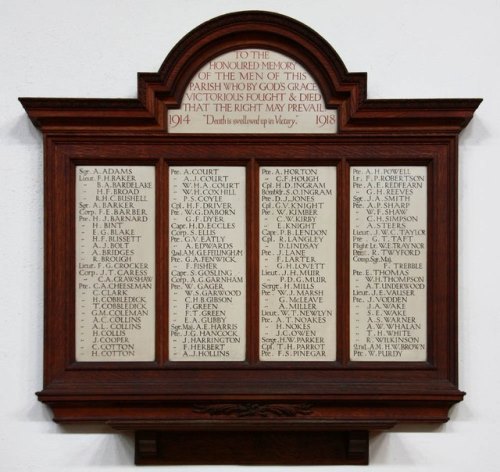 TO THE
HONOURED MEMORY
OF THE MEN OF THIS
PARISH WHO BY GOD'S GRACE
VICTORIOUS FOUGHT & DIED
THAT THE RIGHT MAY PREVAIL
1914 "Death is swallowed up in Victory." 1918
Sgt. A. ADAMS
Lieut. F.H. BAKER
" B.A. BARDELAKE
" H.F. BROAD
" R.H.C. BUSHELL
Sgt. A. BARKER
Corp. F.E. BARBER
Pte. H.J. BARNARD
" H. BINT
" E.G. BLAKE
" H.F. BUSSETT
" A.J. BOLT
" A. BRIDGES
" R. BROUGH
Lieut. F.G. CROCKER
Corp. J.T. CARESS
" C.A. CRAWSHAW
Pte. C.A. CHEESEMAN
" C. CLARK
" H. COBBLEDICK
" T. COBBLEDICK
" G.M. COLEMAN
" A.C. COLLINS
" A.L. COLLINS
" H. COLLIS
" J. COOPER
" C. COTTON
" H. COTTON
Pte. A. COURT
" A.J. COURT
" W.H.A. COURT
" W.H. COXHILL
" P.S. COYLE
Cpl. H.F. DRIVER
Pte. W.G. DABORN
" G.F. DYER
Capt. H.D. ECCLES
Corp. S. ELLIS
Pte. G.V. EATLY
" A. EDWARDS
2nd A.M. G. EFFLINGHAM
Pte. G.A. FENWICK
" F. FISHER
Capt. S. GOSLING
Corp. A.G. GARNHAM
Pte. W. GAGER
" W.S. GARWOOD
" C.H.B. GIBSON
" F. GREEN
" F.T. GREEN
" E.A. GUBBY
Sgt. Maj. A.E. HARRIS
Pte. J.G. HANCOCK
" J. HARRINGTON
" F. HERBERT
" A.J. HOLLINS
Pte. A. HORTON
" C.F. HOUGH
Cpl. H.D. INGRAM
Bombdr. S.O. INGRAM
Pte. D.J. JONES
Cpl. G.V. KNIGHT
Pte. W. KIMBER
" C.W. KIRBY
" E. KNIGHT
Capt. P.B. LENDON
Cpl. R. LANGLEY
" D. LINDSAY
Pte. J. LANE
" F. LARTER
" G.H. LOVITT
Lieut. J.H. MUIR
" P.D.G. MUIR
Sergt. H. MILLS
Pte. W.J. MARSH
" G. McLEAVE
" A. MILLER
Lieut. W.T. NEWLYN
Pte. A.T. NOAKES
" H. NOKES
" J.C. OWEN
Sergt. H.W. PARKER
Cpl. T.H. PARROT
Pte. F.S. PINEGAR
Pte. A.H. POWELL
Lt. F.P. ROBERTSON
Pte. A.E. REDFEARN
" G.H. REEVES
Sgt. J.A. SMITH
Pte. A.P. SHARP
" W.F. SHAW
" C.H. SIMPSON
" A. STEERS
Lieut. W.J. TAYLER
Pte. G.T. TAFT
Flight Lt. W.E. TRAYNOR
Pte. R. TWYFORD
Comp. Sgt. Maj.
" F. TREBBLE
Pte. E. THOMAS
" W.H. THOMPSON
" A.T. UNDERWOOD
Lieut. J.E. VAUSER
Pte. J. VODDEN
" J.A. WAKE
" S.E. WAKE
" A.S. WARNER
" A.W. WHALAN
" T.H. WHITE
" R. WILKINSON
2nd A.M. H.W. BROWN
Pte. W. PURDY